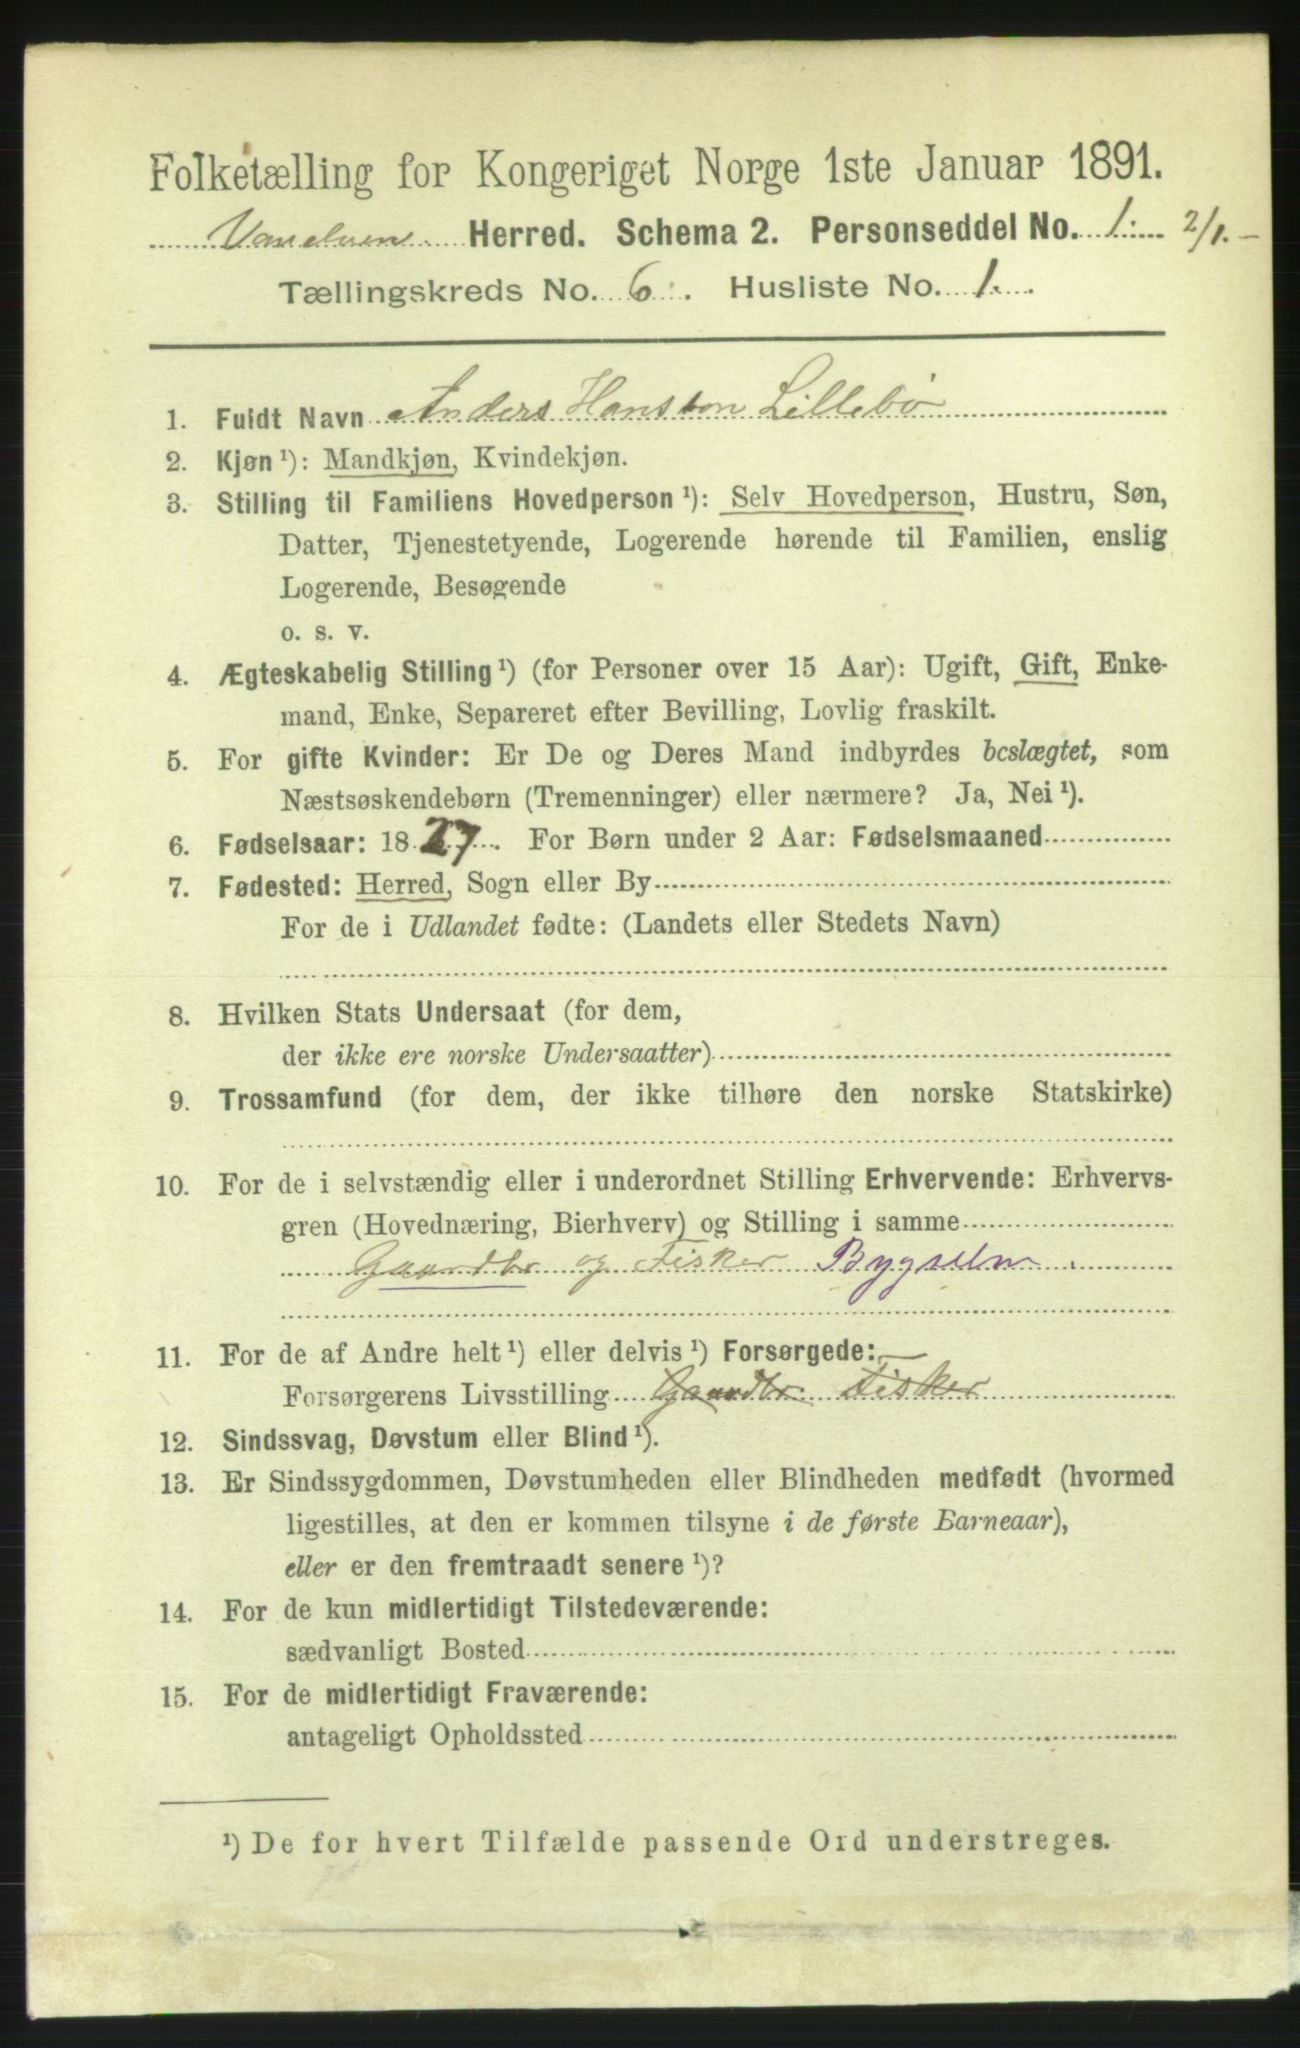 Folketælling for Kongeriget Norge 1ste Januar 1891.
Vanelven Herred. Schema 2. Personseddel No. 1. 2/1.-
Tællingskreds No. 6. Husliste No. 1.
1. Fuldt Navn Anders Hansson Lillebø
2. Kjøn ¹): Mandkjøn, Kvindekjøn.
3. Stilling til Familiens Hovedperson ¹): Selv Hovedperson, Hustru, Søn,
Datter, Tjenestetyende, Logerende hørende til Familien, enslig
Logerende, Besøgende
o. s. v.
4. Ægteskabelig Stilling ¹) (for Personer over 15 Aar): Ugift, Gift, Enke-
mand, Enke, Separeret efter Bevilling, Lovlig fraskilt.
5. For gifte Kvinder: Er De og Deres Mand indbyrdes beslægtet, som
Næstsøskendebørn (Tremenninger) eller nærmere? Ja, Nei ¹).
6. Fødselsaar: 1827. For Børn under 2 Aar: Fødselsmaaned
7. Fødested: Herred, Sogn eller By
For de i Udlandet fødte: (Landets eller Stedets Navn)
8. Hvilken Stats Undersaat (for dem,
der ikke ere norske Undersaatter)
9. Trossamfund (for dem, der ikke tilhøre den norske Statskirke)
10. For de i selvstændig eller i underordnet Stilling Erhvervende: Erhvervs-
gren (Hovednæring, Bierhverv) og Stilling i samme
Gaardbr og Fisker Bygseln.
11. For de af Andre helt ¹) eller delvis ¹) Forsørgede:
Forsørgerens Livsstilling Gaardbr Fisker
12. Sindssvag, Døvstum eller Blind ¹).
13. Er Sindssygdommen, Døvstumheden eller Blindheden medfødt (hvormed
ligestilles, at den er kommen tilsyne i de første Barneaar),
eller er den fremtraadt senere ¹)?
14. For de kun midlertidigt Tilstedeværende:
sædvanligt Bosted
15. For de midlertidigt Fraværende:
antageligt Opholdssted
¹) De for hvert Tilfælde passende Ord understreges.